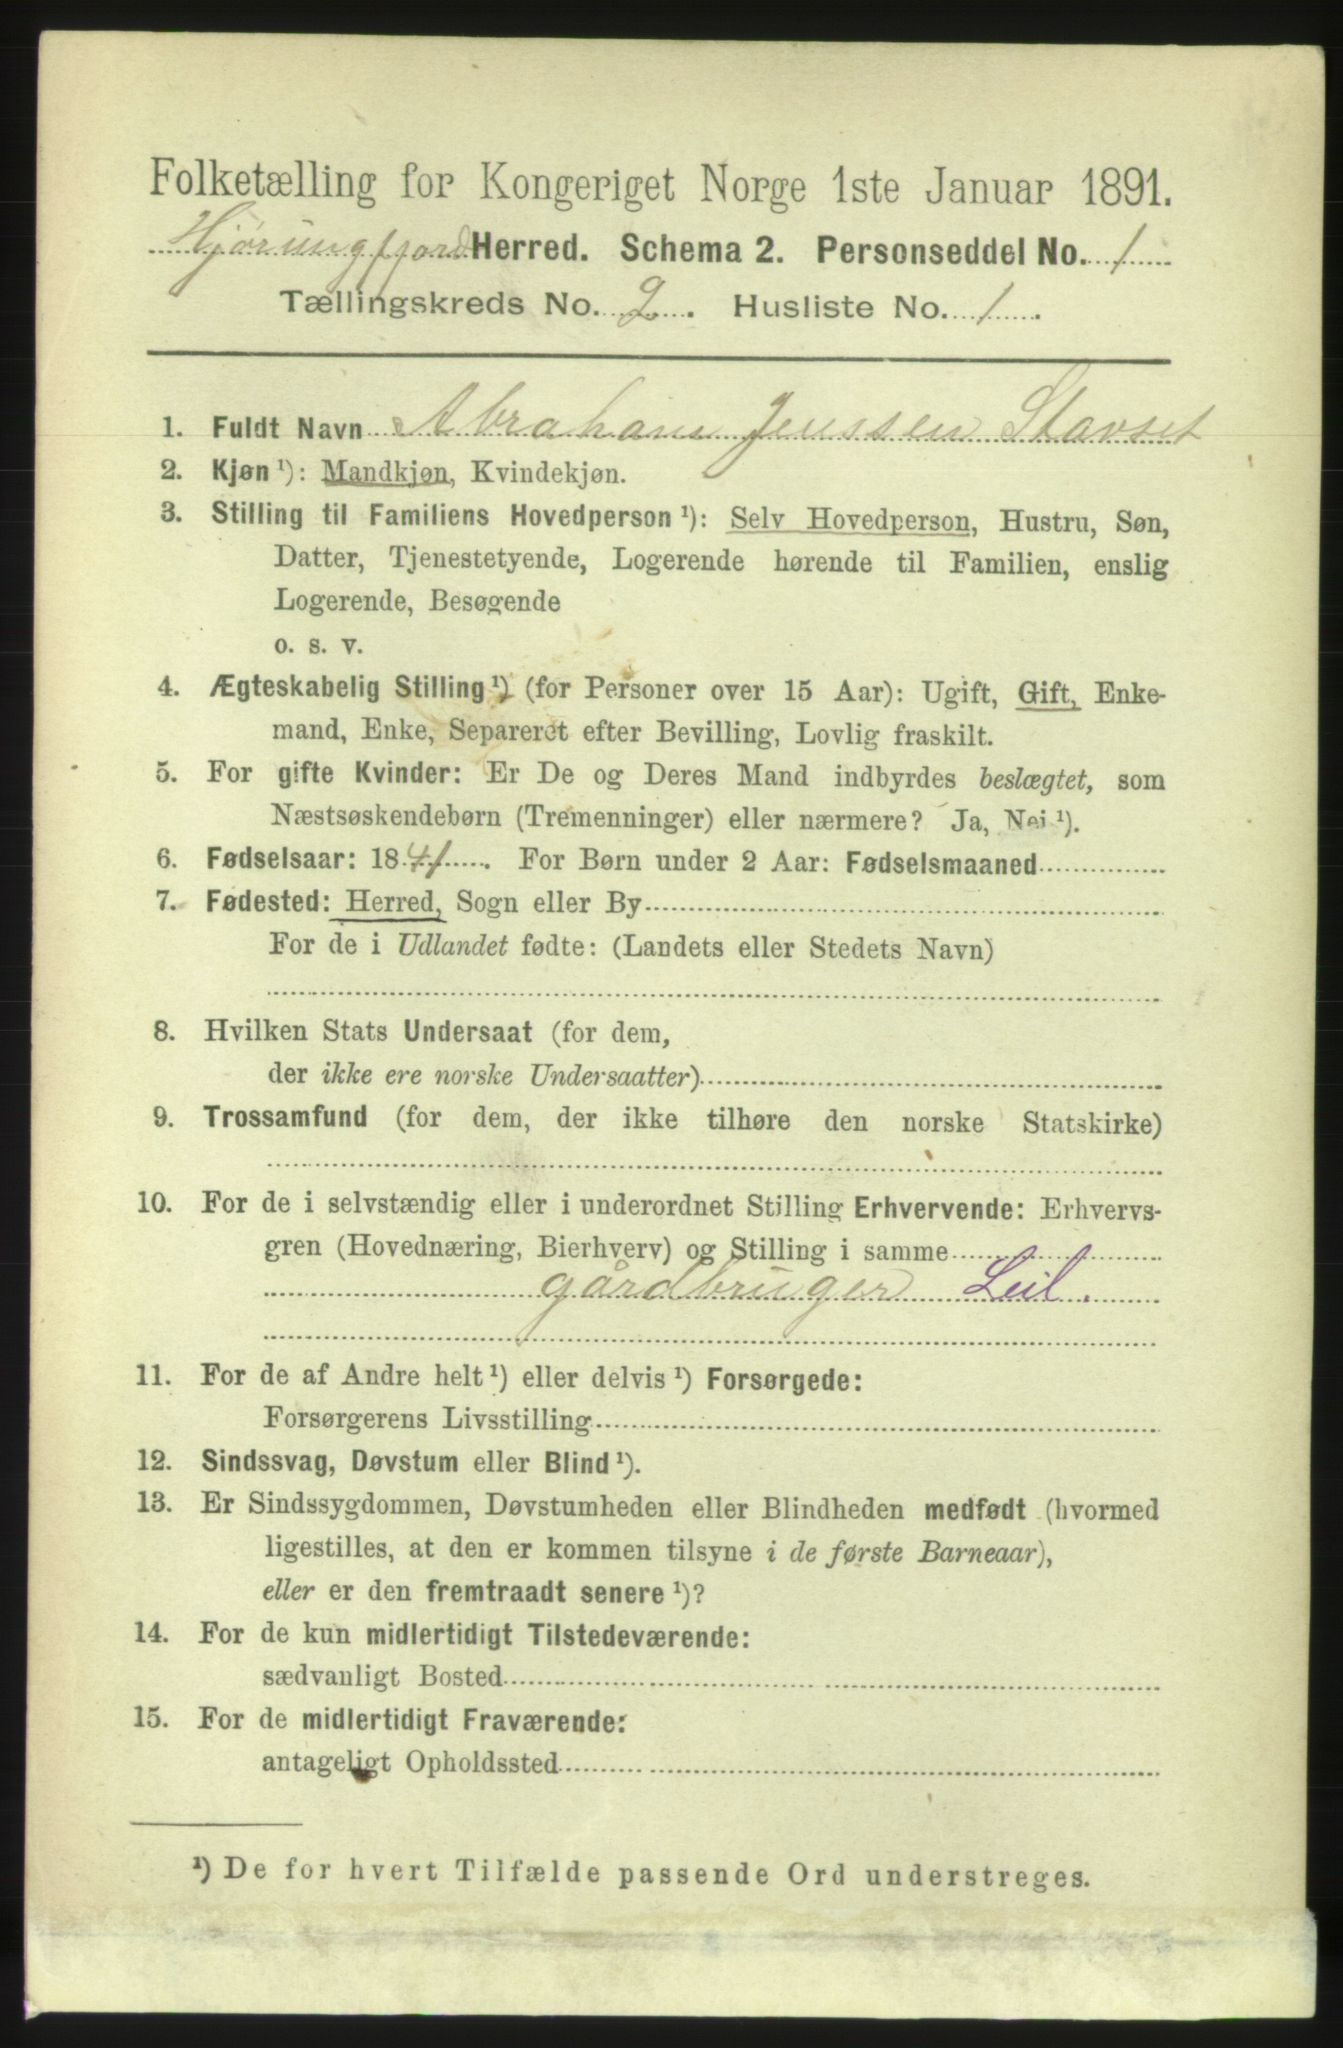 Folketælling for Kongeriget Norge 1ste Januar 1891.
Hjørungfjord Herred. Schema 2. Personseddel No. 1
Tællingskreds No. 2. Husliste No. 1.
1. Fuldt Navn Abraham Jenssen Stavset
2. Kjøn ¹): Mandkjøn, Kvindekjøn.
3. Stilling til Familiens Hovedperson ¹): Selv Hovedperson, Hustru, Søn,
Datter, Tjenestetyende, Logerende hørende til Familien, enslig
Logerende, Besøgende
o. s. v.
4. Ægteskabelig Stilling ¹) (for Personer over 15 Aar): Ugift, Gift, Enke-
mand, Enke, Separeret efter Bevilling, Lovlig fraskilt.
5. For gifte Kvinder: Er De og Deres Mand indbyrdes beslægtet, som
Næstsøskendebørn (Tremenninger) eller nærmere? Ja, Nei ¹).
6. Fødselsaar: 1841. For Børn under 2 Aar: Fødselsmaaned
7. Fødested: Herred, Sogn eller By
For de i Udlandet fødte: (Landets eller Stedets Navn)
8. Hvilken Stats Undersaat (for dem,
der ikke ere norske Undersaatter)
9. Trossamfund (for dem, der ikke tilhøre den norske Statskirke)
10. For de i selvstændig eller i underordnet Stilling Erhvervende: Erhvervs-
gren (Hovednæring, Bierhverv) og Stilling i samme
gårdbruger Leil.
11. For de af Andre helt ¹) eller delvis ¹) Forsørgede:
Forsørgerens Livsstilling
12. Sindssvag, Døvstum eller Blind ¹).
13. Er Sindssygdommen, Døvstumheden eller Blindheden medfødt (hvormed
ligestilles, at den er kommen tilsyne i de første Barneaar),
eller er den fremtraadt senere ¹)?
14. For de kun midlertidigt Tilstedeværende:
sædvanligt Bosted
15. For de midlertidigt Fraværende:
antageligt Opholdssted
¹) De for hvert Tilfælde passende Ord understreges.